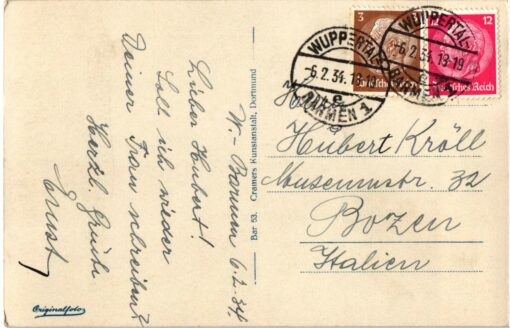 W.-Barmen 6.2.34.
Lieber Hubert!
Soll ich wieder
Deiner Frau schreiben?
Herzl. Grüße
Ernst
Originalfoto
Bar 53. Cramers Kunstanstalt, Dortmund
3
Deutsches Reich
12
Deutsches Reich
WUPPERTAL-
-6.2.34.18-19
BARMEN 1
WUPPERTAL-
-6.2.34.18-19
BARMEN 1
Hubert Kröll
Museumstr. 32
Bozen
Italien